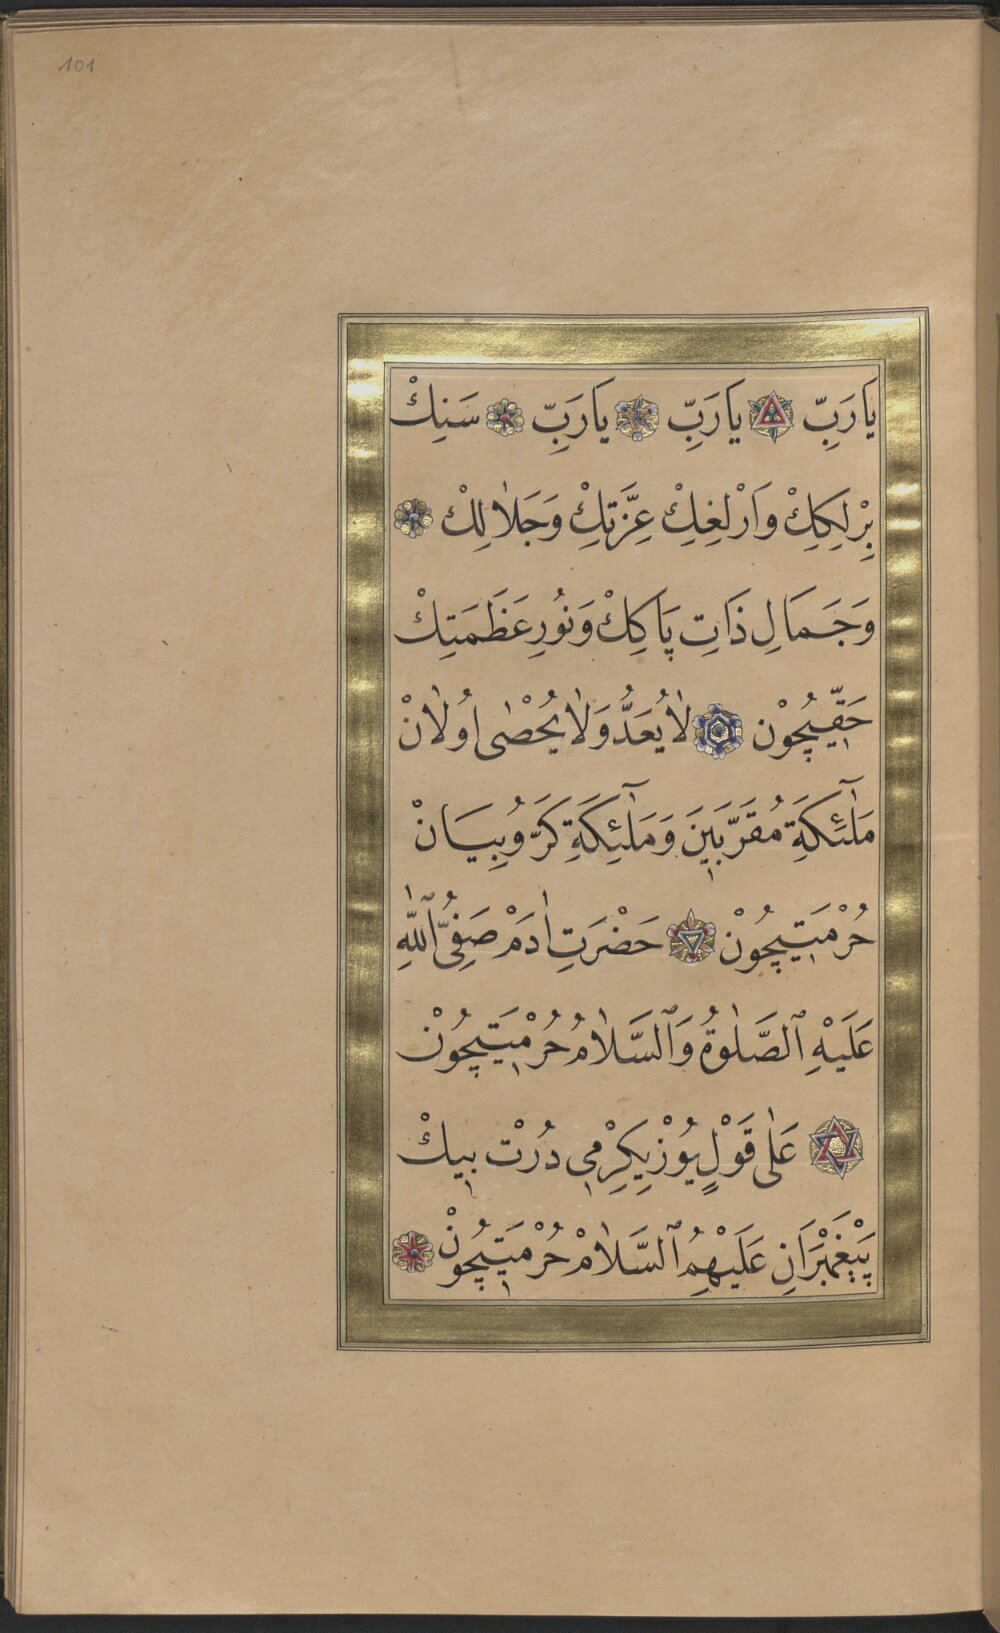 101
يَا رَبِّ يَا رَبِّ يَا رَبِّ سَنِكْ
بِرْلِكِكِْ وَارْلِغِكْ عِزَّتِكْ وَجَلَالِكْ
وَجَمَالِ ذَاتِ پَاكِكْ وَنُورِ عَظَمَتِكْ
حَقِّيچُوْن لَا يُعَدُّ وَلَا يُحْصٰى اُولَانْ
مَلٰٓئِكَةِ مُقَرَّبِينَ وَمَلٰٓئِكَةِ كَرُّوبِيَانْ
حُرْمَتِيچُوْنْ حَضْرَتِ اٰدَمْ صَفِيُّ ٱللّٰهِ
عَلَيْهِ ٱلصَّلٰوةُ وَٱلسَّلَامُ حُرْمَتِيچُوْنْ
عَلٰى قَوْلٍ يُوْزْ يِكِرْمِى دُرْتْ بِيكْ
پَيْغَمْبَرَانِ عَلَيْهِمُ ٱلسَّلَامْ حُرْمَتِيچُونْ